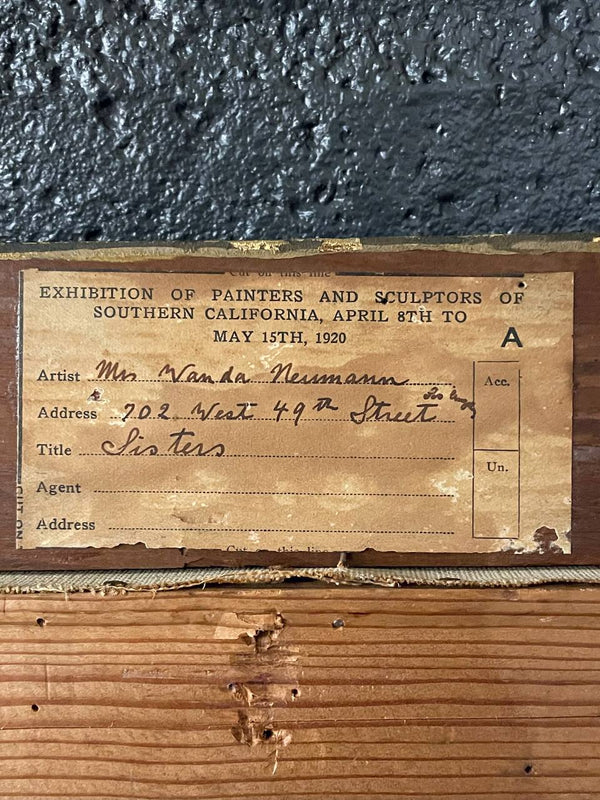 Cut on this line
EXHIBITION OF PAINTERS AND SCULPTORS OF
SOUTHERN CALIFORNIA, APRIL 8TH TO
MAY 15TH, 1920
A
Artist Mrs Wanda Neumann
Address 702 West 49th Street Los
Title Sisters
Agent
Address
Acc.
Un.
CUT ON
Cut on this line